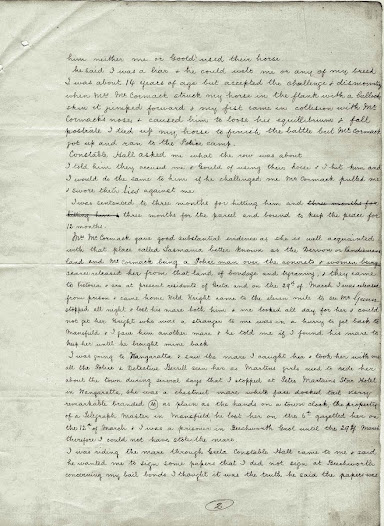 him neither me or Goold used their horse
he said I was a liar & he could welt me or any of my breed
I was about 14 years of age but accepted the challenge & dismounting
when Mrs McCormack struck my horse in the flank with a bullock's
skin it jumped forward & my fist came in collision with Mc
Cormack's nose & caused him to loose his equillibrium & fall
postrate I tied up my horse to finish the battle but McCormack
got up and ran to the Police camp.
Constable Hall asked me what the row was about
I told him they accused me & Gould of using their horse & I hit him and
I would do the same to him if he challenged me McCormack pulled me
& swore their lies against me
I was sentenced to three months for hitting him and three months for
three months for the parcel and bound to keep the peace for
12 months.
Mrs McCormack gave good substantial evidence as she is well acquainted
with that place called Tasmania better known as the Dervon or Vandiemens
land and McCormack being a Police man over the convicts & women being
scarce released her from that land of bondage and tyranny, & they came
to Victoria & are at present residents of Greta and on the 29th of March I was released
from prison & came home Wild Wright came to the eleven mile to see Mr Gunn
stopped all night & lost his mare both him & me looked all day for her & could
not get her Wright who was a stranger to me was in a hurry to get back to
Mansfield & I gave him another mare & he told me if I found his mare to
keep her until he brought mine back
I was going to Wangaratta & saw the mare I caught her & took her with me
all the Police & Detective Berrill seen her as Martins girls used to ride her
about the town during several days that I stopped at Peter Martains Star Hotel
in Wangaratta, she was a chestnut mare white face docked tail very
remarkable branded (M) as plain as the hands on a town clock, the property
of a Telegraph Master in Mansfield he lost her on the 6th gazetted her on
the 12th of March & I was a prisoner in Beechworth Gaol until the 29th of March
therefore I could not have stole the mare.
I was riding the mare through Greta Constable Hall came to me & said
he wanted me to sign some papers that I did not sign at Beechworth
concerning my bail bonds I thought it was the truth he said the papers was
2